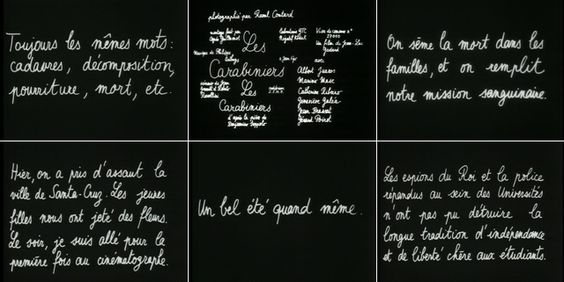 Toujours les mêmes mots:
cadavres, décomposition,
pourriture, mort, etc.
photographié par Raoul Coutard
montage fait par
Agnès Guillemot
Les
musique de Philippe
Arthuys
Carabiniers
Les
Carabiniers
d'après la pièce de
Laboratoires GTC
à Jean Vigo
Visa de censure n°
Un film de Jean-Luc
Godard
avec
Albert Juross
Catherine Ribeiro
Geneviève Galéa
Gérard Poirot
On sème la mort dans les
familles, et on remplit
notre mission sanguinaire.
Hier, on a pris d'assaut la
ville de Santa-Cruz. Les jeunes
filles nous ont jeté des fleurs.
Le soir, je suis allé pour la
première fois au cinématographe.
Un bel été quand même.
Les espions du Roi et la police
répandus au sein des Universités
n'ont pas pu détruire la
longue tradition d'indépendance
et de liberté chère aux étudiants.